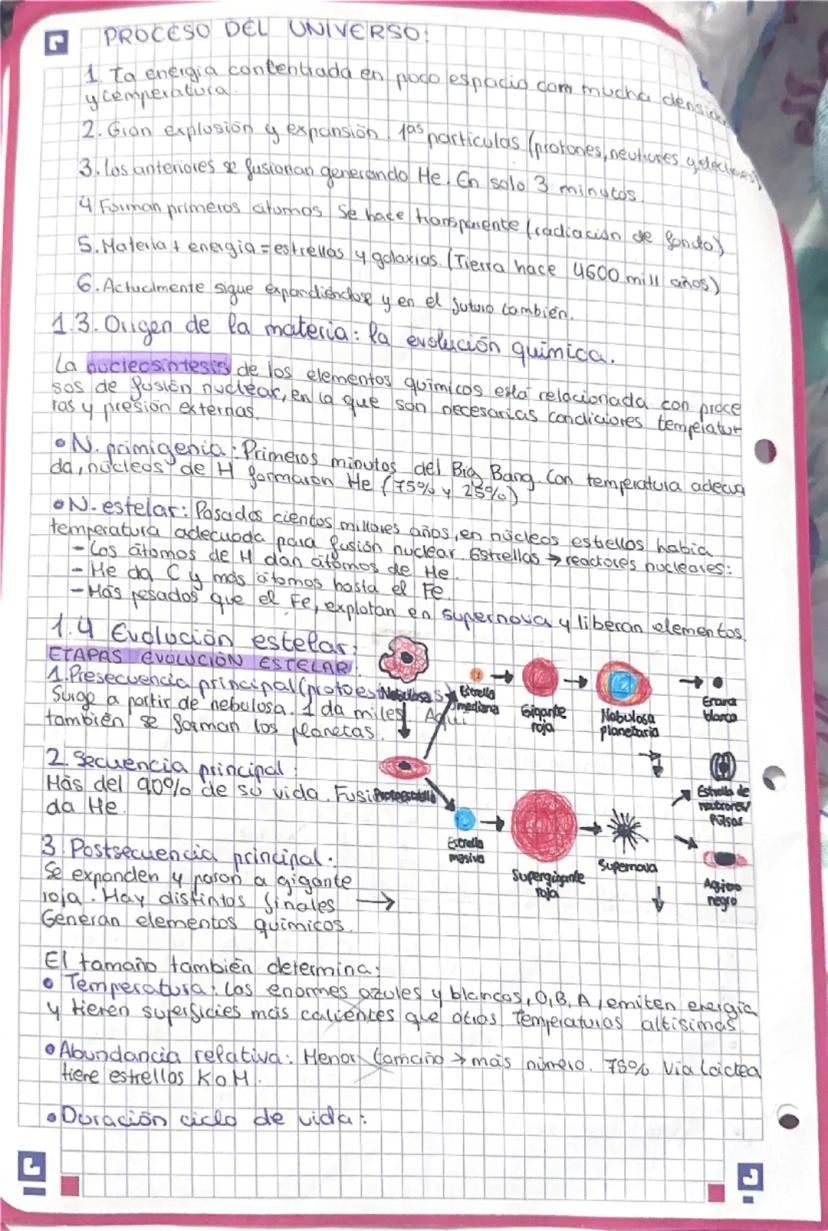 PROCESO DEL UNIVERSO:
1. Ta energía contentrada en poco espacio com mucha densida
y temperatura.
2. Gran explosión y expansión. 1as partículas (protones, neutrones y electrones)
3. Los anteriores se fusionan generando He. En solo 3 minutos.
4 Forman primeros átomos Se hace transparente (radiación de fondo)
5. Materia + energía = estrellas y galaxias. (Tierra hace 4600 mill años)
6. Actualmente sigue expandiéndose y en el futuro también.
1.3. Origen de la materia: la evolución química.
La nucleosíntesis de los elementos químicos está relacionada con proce
sos de fusión nuclear, en la que son necesarias condiciones temperatur
ras y presión externas.
• N. primigenia: Primeros minutos del Big Bang. Con temperatura adecua
da, núcleos de H formaron He (75% y 25%)
• N. estelar: Pasados cientos millones años, en núcleos estrellas había
temperatura adecuada para fusión nuclear. Estrellas → reactores nucleares:
- Los átomos de H dan átomos de He.
- He da C y más átomos hasta el Fe.
- Más pesados que el Fe, explotan en supernova y liberan elementos.
1.4 Evolución estelar:
ETAPAS EVOLUCIÓN ESTELAR
1. Presecuencia principal (protoes
Surge a partir de nebulosa. 1 da miles. Aquí
también se forman los planetas.
2. Secuencia principal:
Más del 90% de su vida. Fusi
da He.
3. Postsecuencia principal:
Se expanden y pasan a gigante
roja. Hay distintos finales →
Generan elementos químicos.
Nebulosa
Protoestrella
Estrella
mediana
Gigante
roja
Nebulosa
planetaria
Enana
blanca
Estrella
masiva
Supergigante
roja
Supernova
Estrella de
neutrones/
Pulsar
Agujero
negro
El tamaño también determina:
• Temperatura: Las enormes azules y blancas, O, B, A, emiten energía
y tienen superficies más calientes que otras Temperaturas altísimas
• Abundancia relativa: Menor tamaño → más número. 75% Vía Láctea
tiene estrellas K o M.
• Duración ciclo de vida: